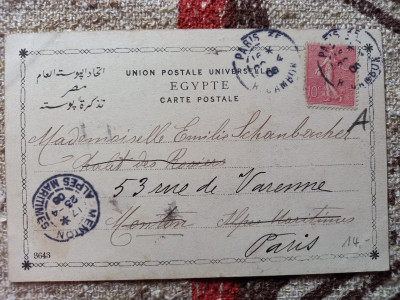 اتحاد البوستة العام
مصر
تذكرة بوستة
UNION POSTALE UNIVERSELLE
EGYPTE
CARTE POSTALE
PARIS
10
A
Mademoiselle Emilie Schanbacher
Chalet des Rosiers
53 rue de Varenne
Menton Alpes Maritimes
Paris
14.-
MENTON
ALPES MARITIMES
8643